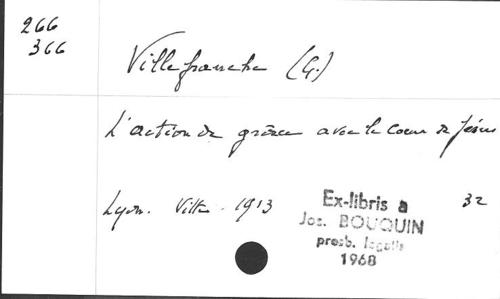 266
366
Villefranche (G.)
L'action de grâces avec le Coeur de Jésus
Lyon. Vitte. 1913 32
Ex-libris a
Jos. BOUQUIN
presb. legatis
1968